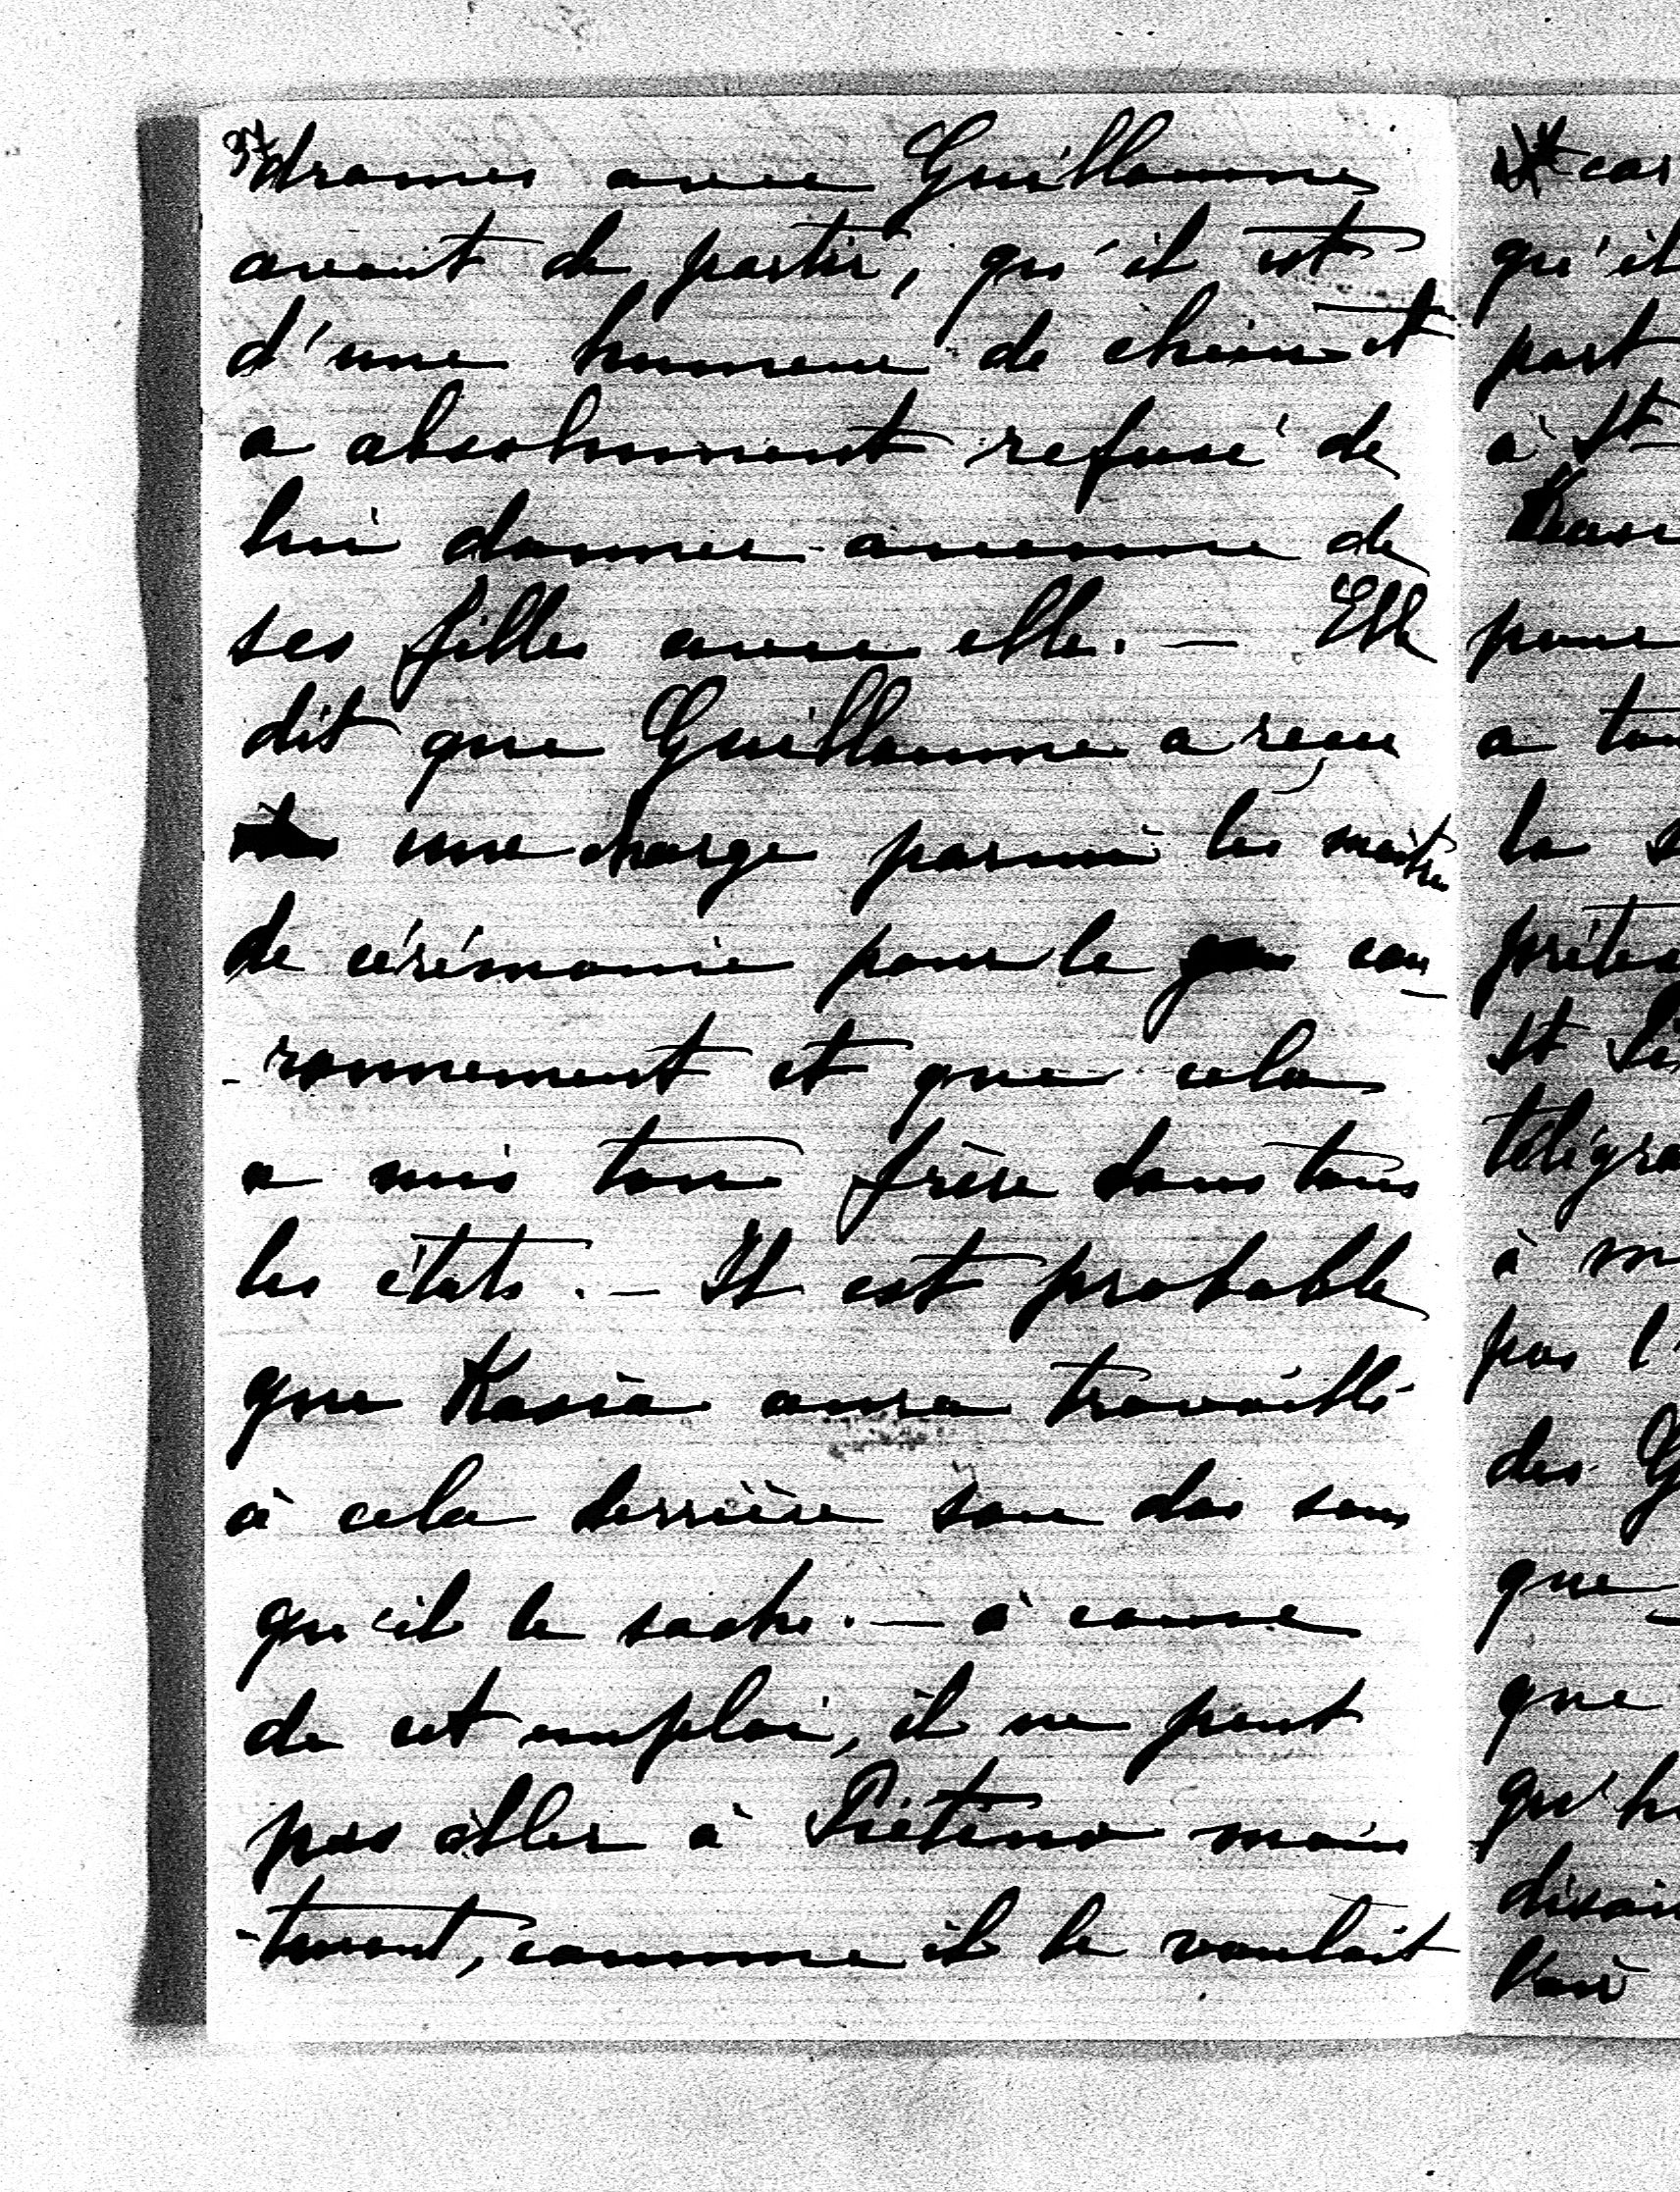 37
drames avec Guillaume
avant de partir, qu'il est
d'une humeur de chien et
a absolument refusé de
lui donner aucune de
ses filles avec elle. — Elle
dit que Guillaume a reçu
une charge parmi les maîtres
de cérémonie pour le cou
-ronnement et que cela
a mis ton frère dans tous
les états. — Il est probable
que Kasia aura travaillé
à cela derrière son dos sans
qu'il le sache. — à cause
de cet emploi, il ne peut
pas aller à Piéteno main
-tenant, comme il le voulait
car
qu'il
part
à St

pour
a tou
la s

St
télégra
à m
pas l'
des G
que
que
qu'h
disai